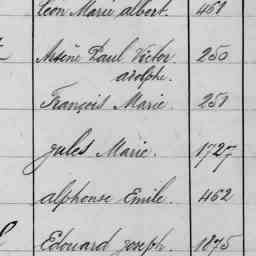 Léon Marie albert. 461
Arsène Paul Victor 250
adolphe.
François Marie. 251
Jules Marie. 1727
alphonse Emile. 452
Edouard Joseph. 1875